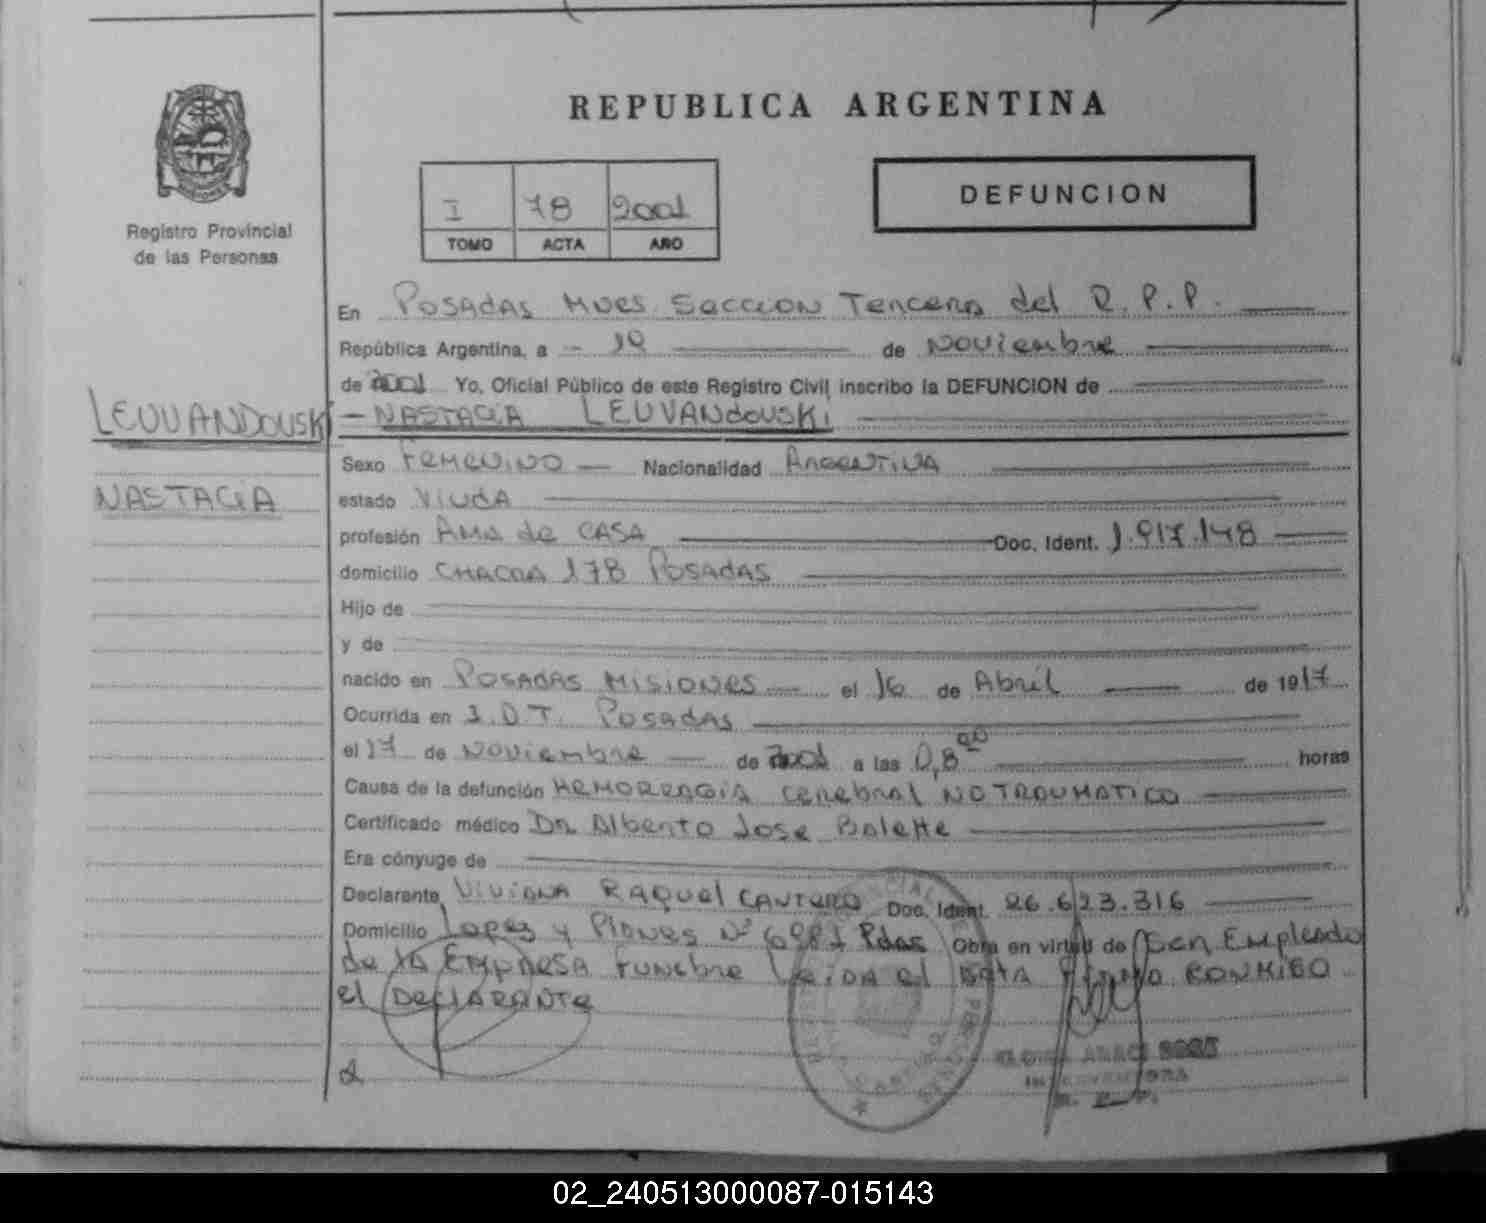 REPUBLICA ARGENTINA
DEFUNCION
I 78 2001
TOMO ACTA AÑO
MISIONES
Registro Provincial
de las Personas
En Posadas Mnes Seccion Tercera del R.P.P.
República Argentina, a - 19 de Noviembre
de 2001 Yo, Oficial Público de este Registro Civil, inscribo la DEFUNCION de
LEUVANDOUSKI - NASTACIA LEUVANdOUSKI
Sexo Femenino - Nacionalidad Argentina
NASTACIA estado Viuda
profesión Ama de CASA Doc. Ident. 1.917.148
domicilio CHACRA 178 Posadas
Hijo de
y de
nacido en Posadas Misiones el 16 de Abril de 1917
Ocurrida en I.O.T. Posadas
el 17 de Noviembre de 2001 a las 0,8 00 horas
Causa de la defunción HEMORRAGIA cerebral NO TRAUMATICO
Certificado médico Dr Alberto Jose Bolette
Era cónyuge de
Declarante, Viviana Raquel Cantero Doc. Ident. 26.623.316
Domicilio Lopez y Planes Nº 6981 Pdas Obra en virtud de Ser Empleado
de la Empresa Funebre Leida el Acta Firma CONMIGO
el DeclARANTe